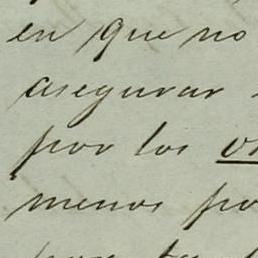 en que no
asegurar
por los
menos po